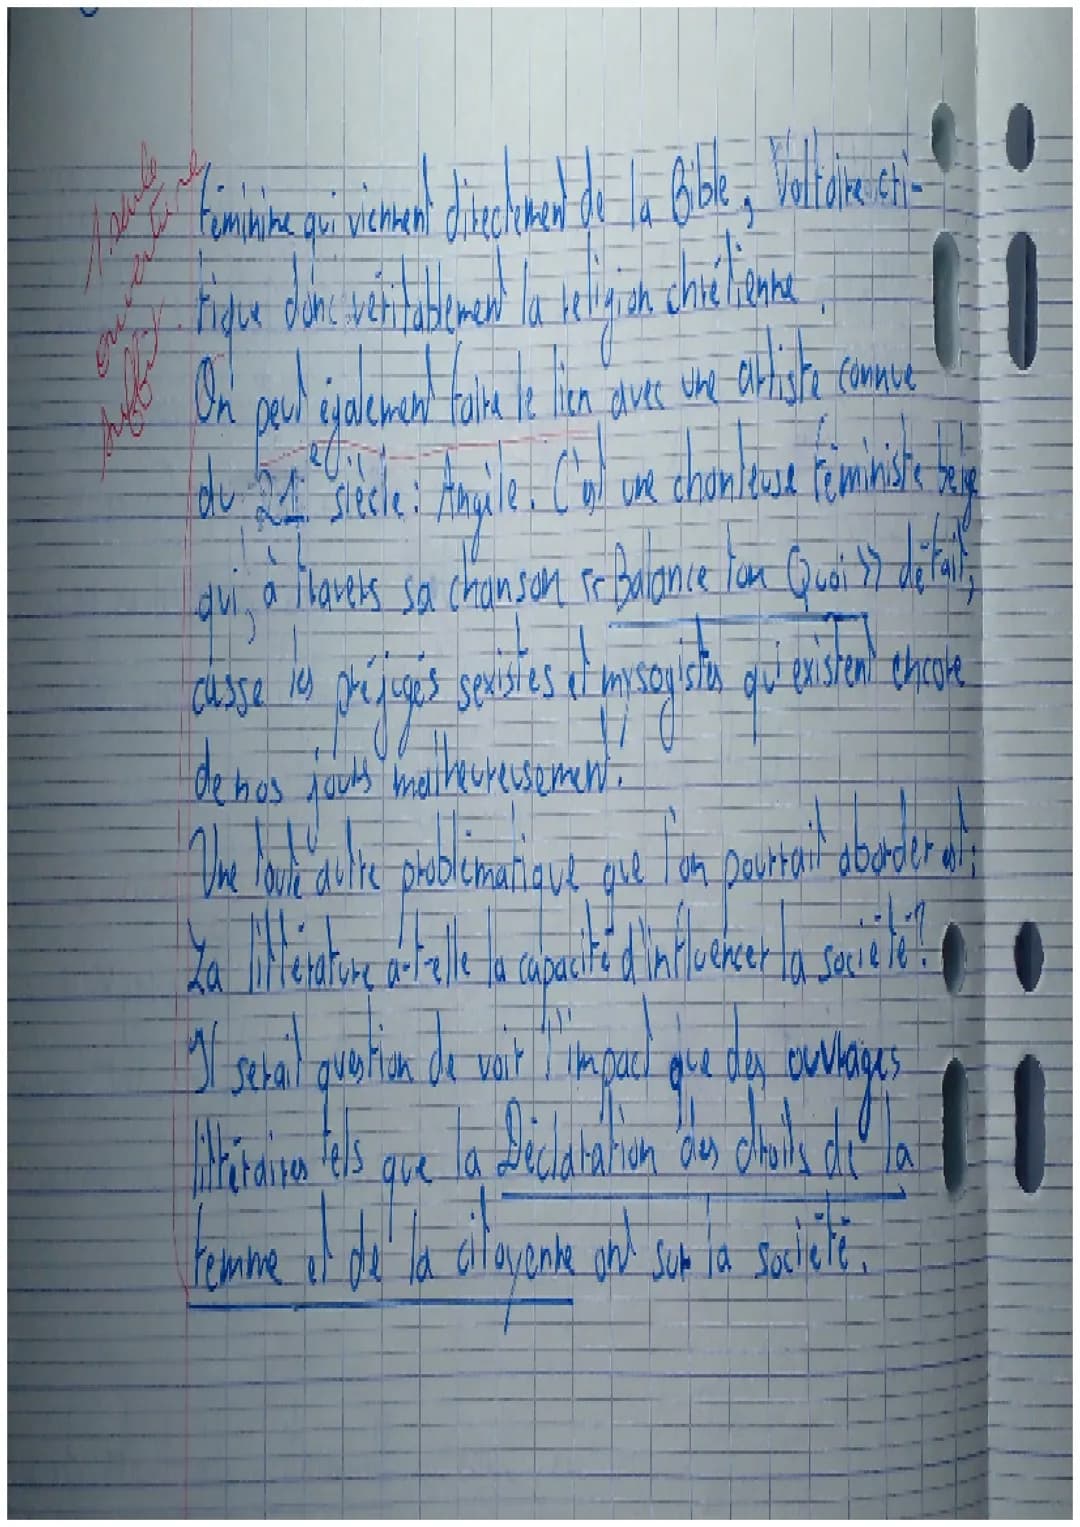 1 seule
ouverture
suffit.
féminine qui viennent directement de la Bible, Voltaire cri-
tique donc véritablement la religion chrétienne.
On peut également faire le lien avec une artiste connue
du 21e siècle : Angèle. C'est une chanteuse féministe belge
qui, à travers sa chanson << Balance ton Quoi >> défait,
casse les préjugés sexistes et mysogistes qui existent encore
de nos jours malheureusement.
Une toute autre problématique que l'on pourrait aborder est :
La littérature a-t-elle la capacité d'influencer la société ?
Il serait question de voir l'impact que des ouvrages
littéraires tels que la Déclaration des droits de la
femme et de la citoyenne ont sur la société.